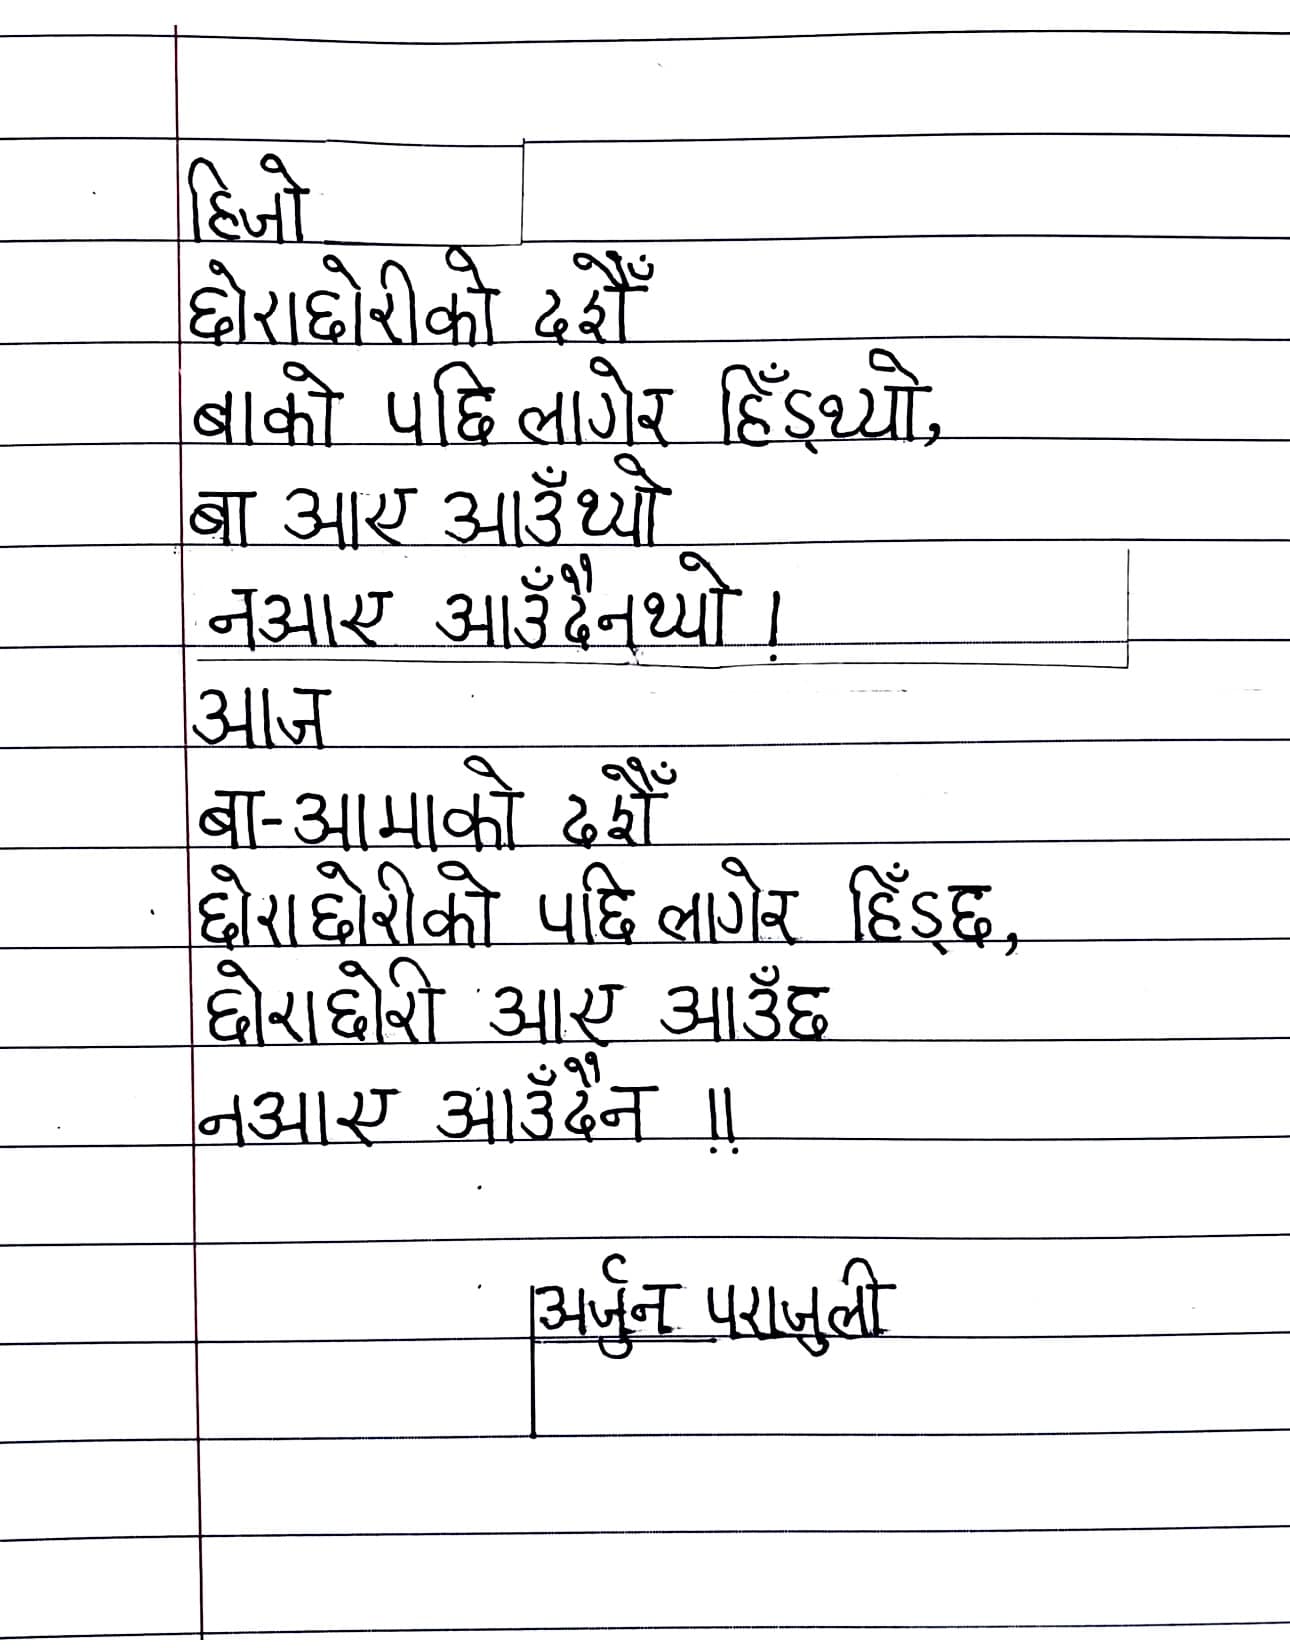 हिजो
छोराछोरीको दशैँ
बाको पछि लागेर हिँड्थ्यो,
बा आए आउँथ्यो
नआए आउँदैनथ्यो !
आज
बा-आमाको दशैँ
छोराछोरीको पछि लागेर हिँड्छ,
छोराछोरी आए आउँछ
नआए आउँदैन !!
अर्जुन पराजुली